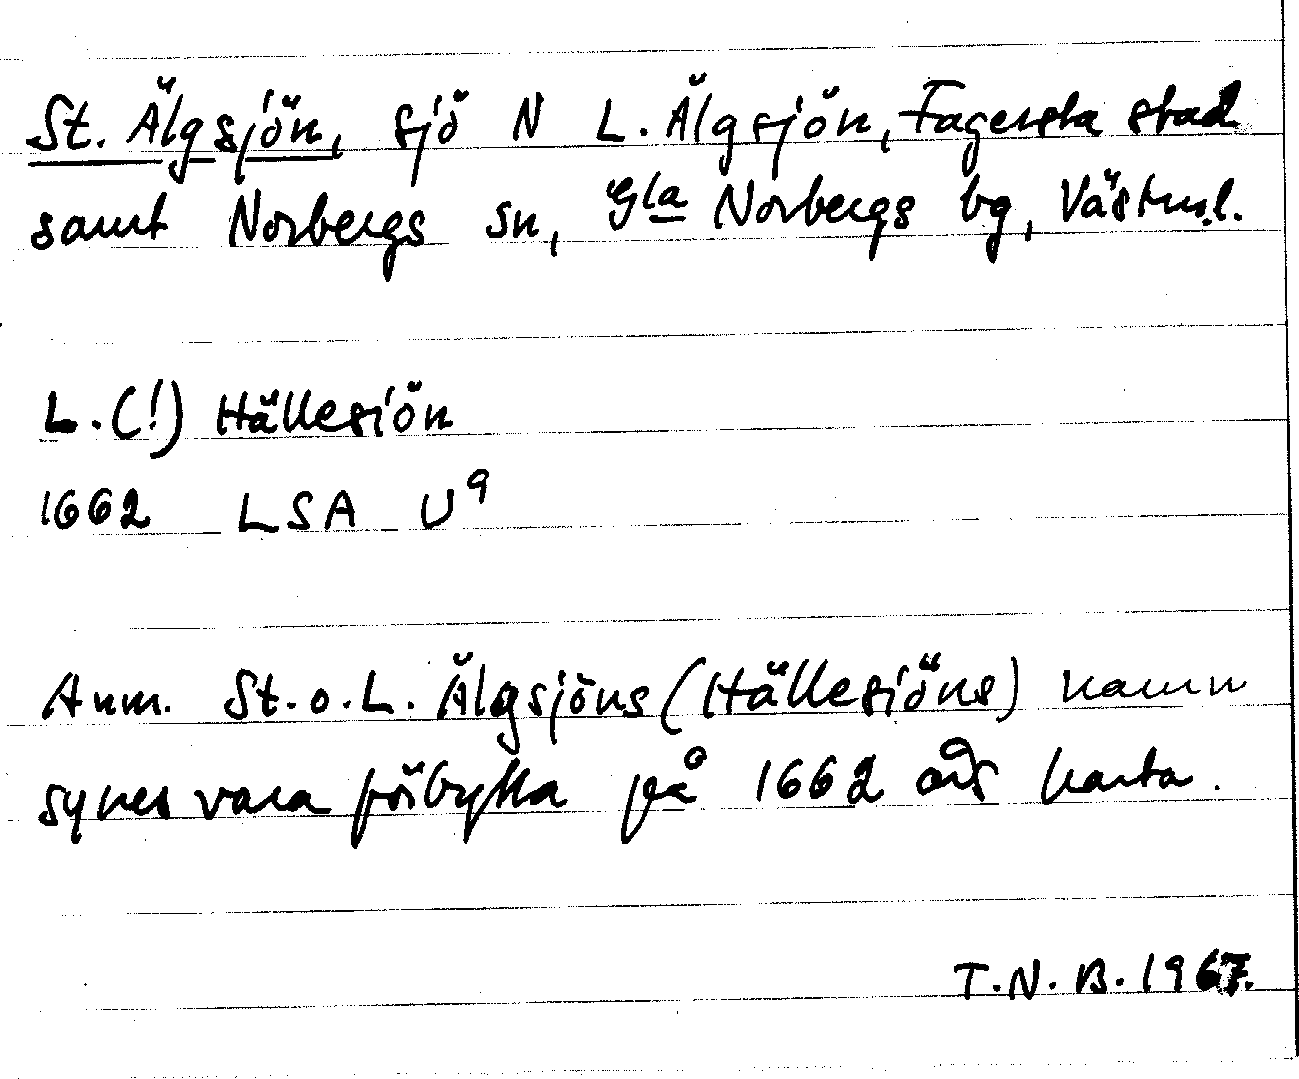 St. Älgsjön, sjö N L. Älgsjön, Fagersta stad
samt Norbergs sn, Gla Norbergs bg, Västm.l.
L.(!) Hällesiön
1662 LSA U9
Anm. St. o. L. Älgsjöns (Hällesiöns) namn
synes vara förbytta på 1662 års karta.
T.N.B. 1967.